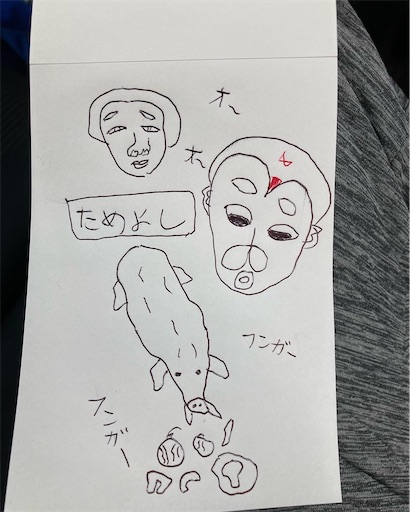 オ〜
オ〜
ためよし
フンガー
フンガー